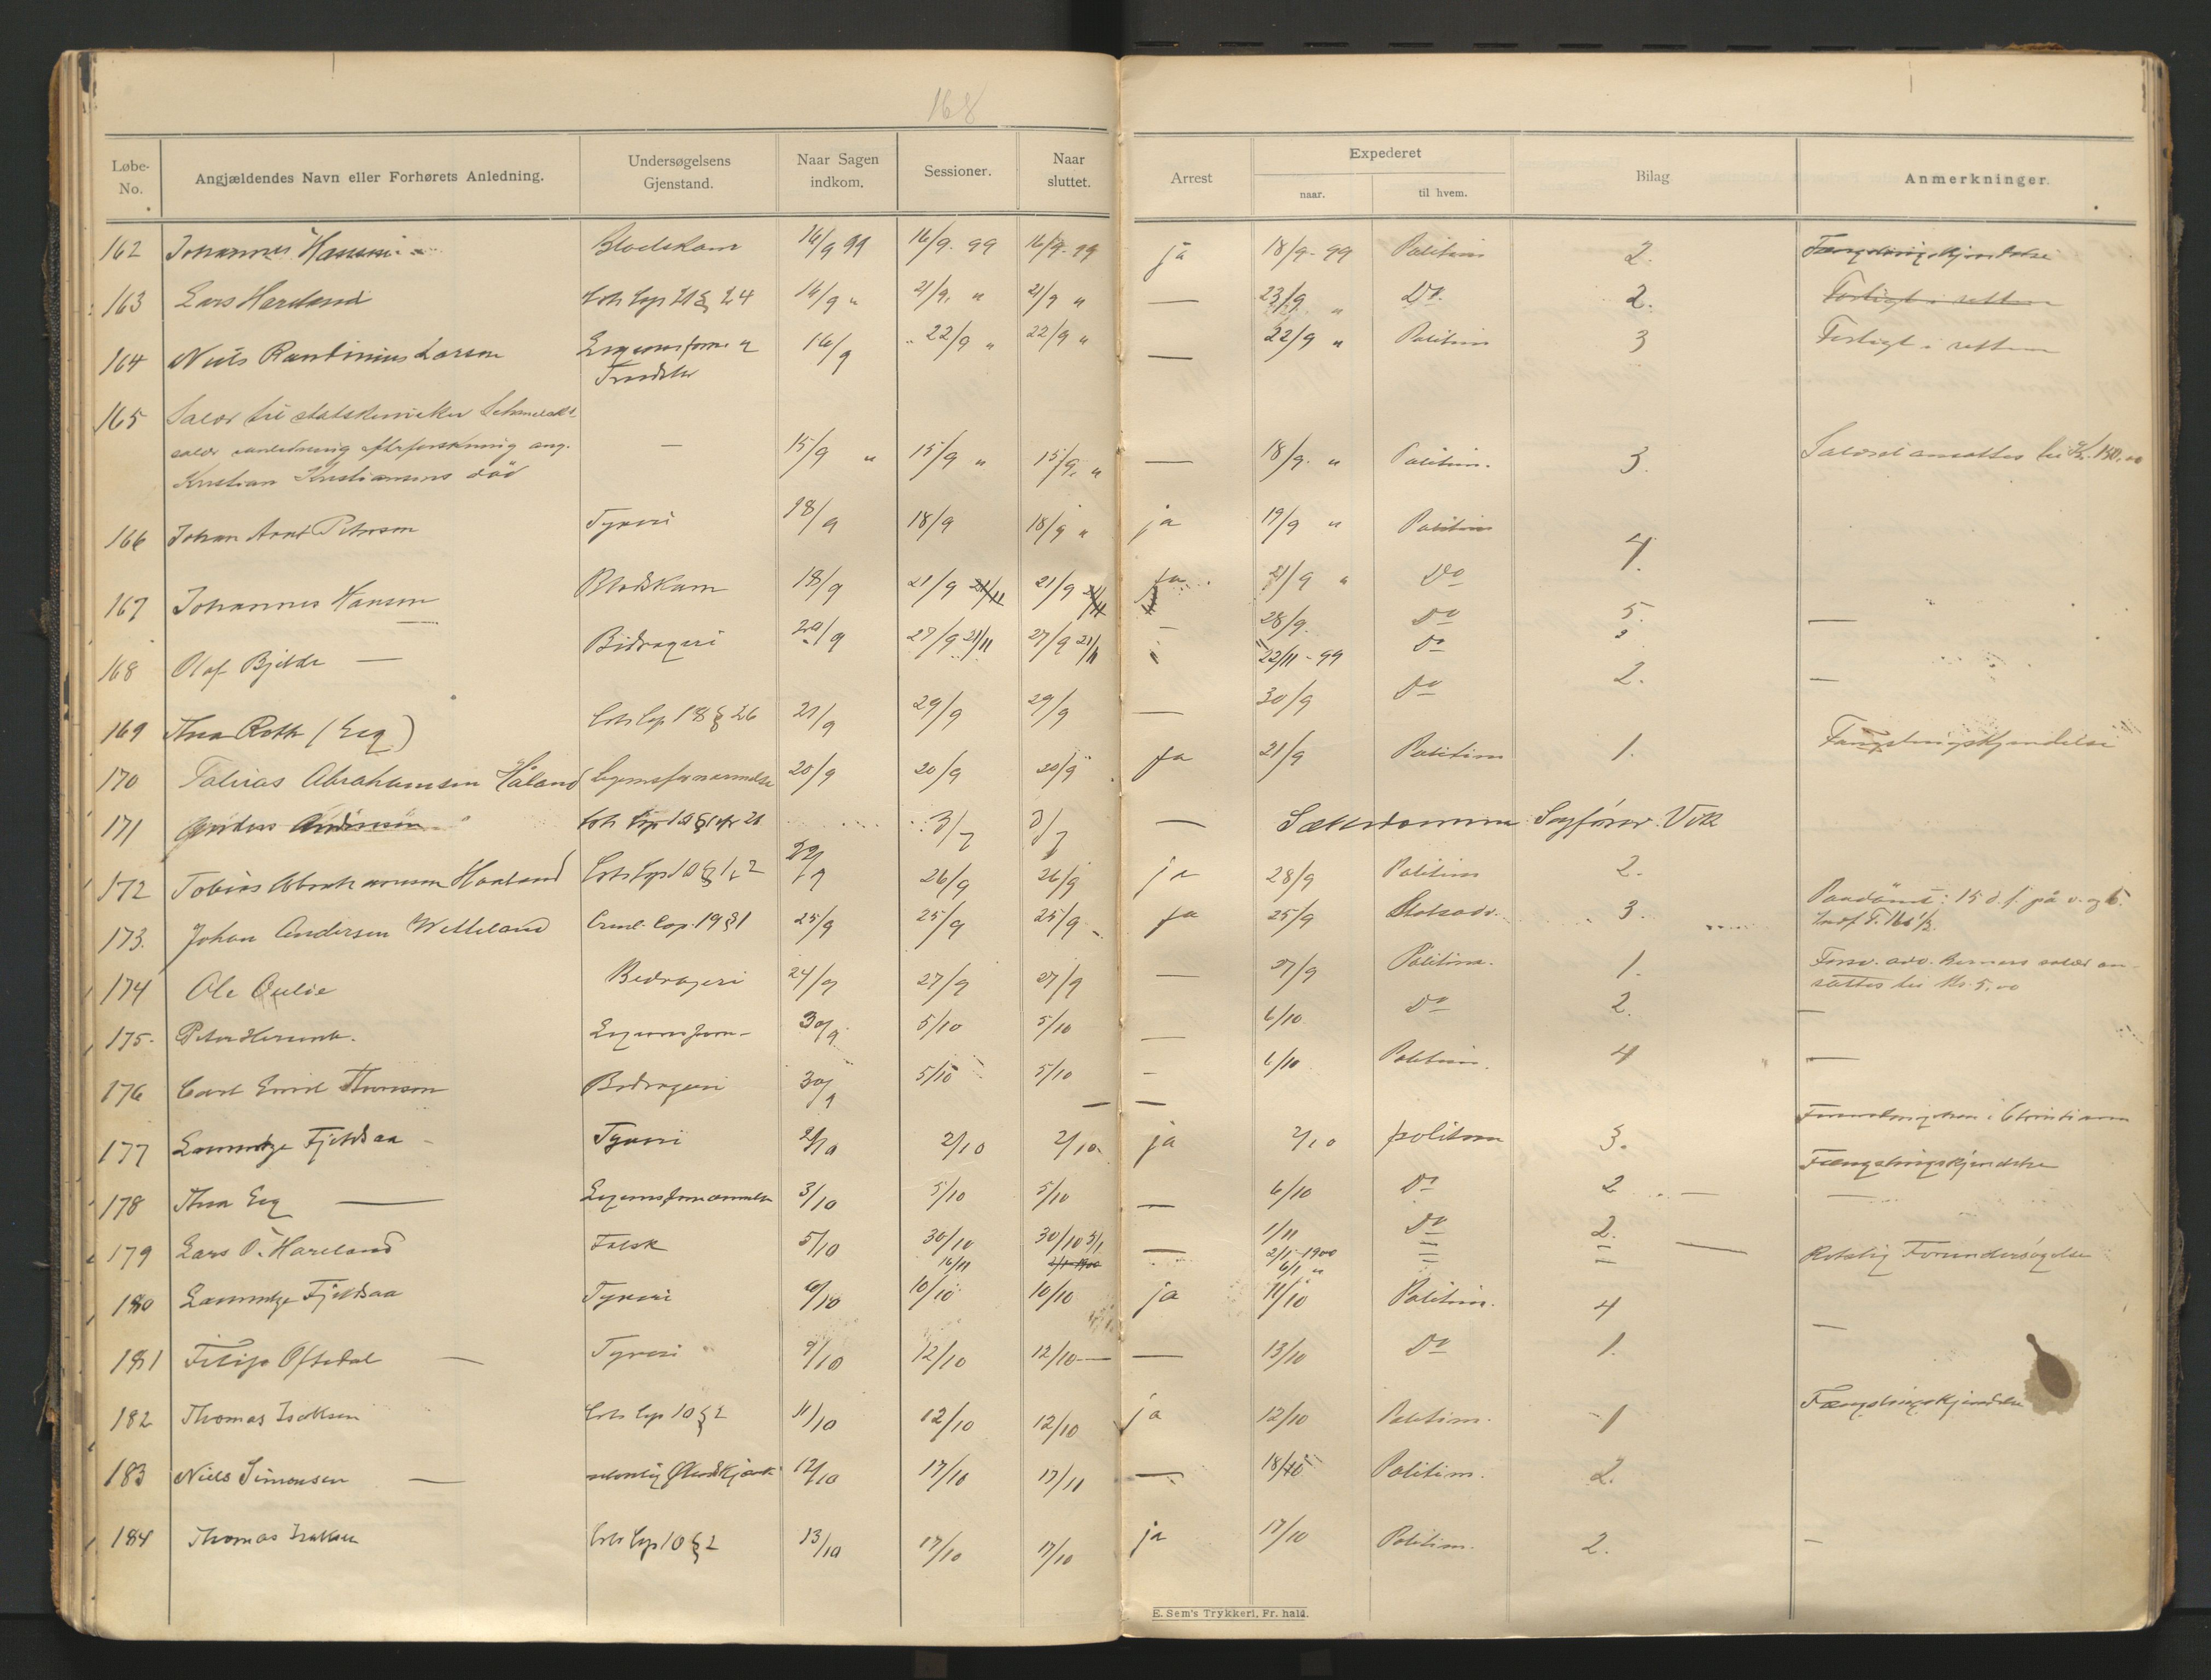 168
Løbe-No. Angjældendes Navn eller Forhørets Anledning. Undersøgelsens Gjenstand. Naar Sagen indkom. Sessioner. Naar sluttet. Arrest Expederet naar. til hvem. Bilag Anmerkninger.
162 Johannes Hansen Blodskam 16/9 99 16/9. 99 16/9. 99 ja 18/9. 99 Politim 2. Fængslingskjendelse
163 Lars Hareland 16/9 " 21/9. " 21/9 " — 23/9 " Do. 2. Forligt i retten
164 Niels Larsen 16/9 22/9 " 22/9 " — 22/9 " Politim 3 Forligt i retten
165 Salær til statskemiker Schmelck
salær anledning efterforskning ang. — 15/9 " 15/9 " 15/9. " — 18/9. " Politim. 3. Salæret ansattes til Kr. 150.00
Kristian Kristiansens död
166 Johan Arnt Petersen Tyveri 18/9 18/9 18/9 " ja 19/9 " Politim 4.
167 Johannes Hansen Blodskam 18/9 21/9 21/11 21/9 21/11 ja 21/9 " Do
28/9. Do 5. —
168 Olaf Bjelde — Bedrageri 20/9 27/9 21/11 27/9 21/11 22/11 - 99 Do
169 Thea Roth (Eeg) Lov Cap 18 § 26 21/9 29/9 29/9 — 30/9 Do 2. —
170 Tobias Abrahamsen Håland Legemsfornærmelse 20/9 20/9 20/9 ja 21/9 Politim 1. Fængslingskjendelse
171 Anders Andersen 3/7 3/7 — Sættedommer Sagfører Vik
172 Tobias Abrahamsen Haaland 22/9 26/9 26/9 ja 28/9 Politim 2.
173. Johan Andersen Welleland Criml. Cap. 19 § 1 25/9 25/9 25/9 ja 25/9 Statsadv. 3. Paadömt: 15 d. f. på v. og b.
174 Ole Aulie Bedrageri 24/9 27/9 27/9 — 27/9 Politim. 1. Forsv. adv. salær an-
sattes til Kr. 5.00
175. Peter Legemsforn- 30/9 5/10 5/10 — 6/10 Do 2. —
176 Carl Emil Thorsen Bedrageri 30/9 5/10 5/10 — 6/10 Politim. 4 —
177 Fjeldsaa Tyveri 2/10 2/10 2/10 ja 2/10 politim 3. Fængslingskjendelse
178 Thea Eeg — Legemsfornærmelse 3/10 5/10 5/10 — 6/10 Do 2 —
179 Lars O. Hareland Falsk 5/10 30/10 30/10 3/1 — 1/11 Do 2. — Retslig Forundersøgelse
16/11 2/1 - 1900
6/1 "
180 Fjeldsaa Tyveri 6/10 10/10 10/10 ja 11/10 Politim. 4 —
181 Filip Oftedal — Tyveri 9/10 12/10 12/10 — 13/10 Do 1.
182 Thomas Isaksen Lov Cap 10 § 2 11/10 12/10 12/10 ja 12/10 Politim. 1 Fængslingskjendelse
183 Niels Simonsen — ulovlig 12/10 17/10 17/11 — 18/10 Politim. 2.
184 Thomas Isaksen Lov Cap 10 § 2 13/10 17/10 17/10 ja 17/10 Politim. 2. —
E. Sem's Trykkeri, Fr. hald.